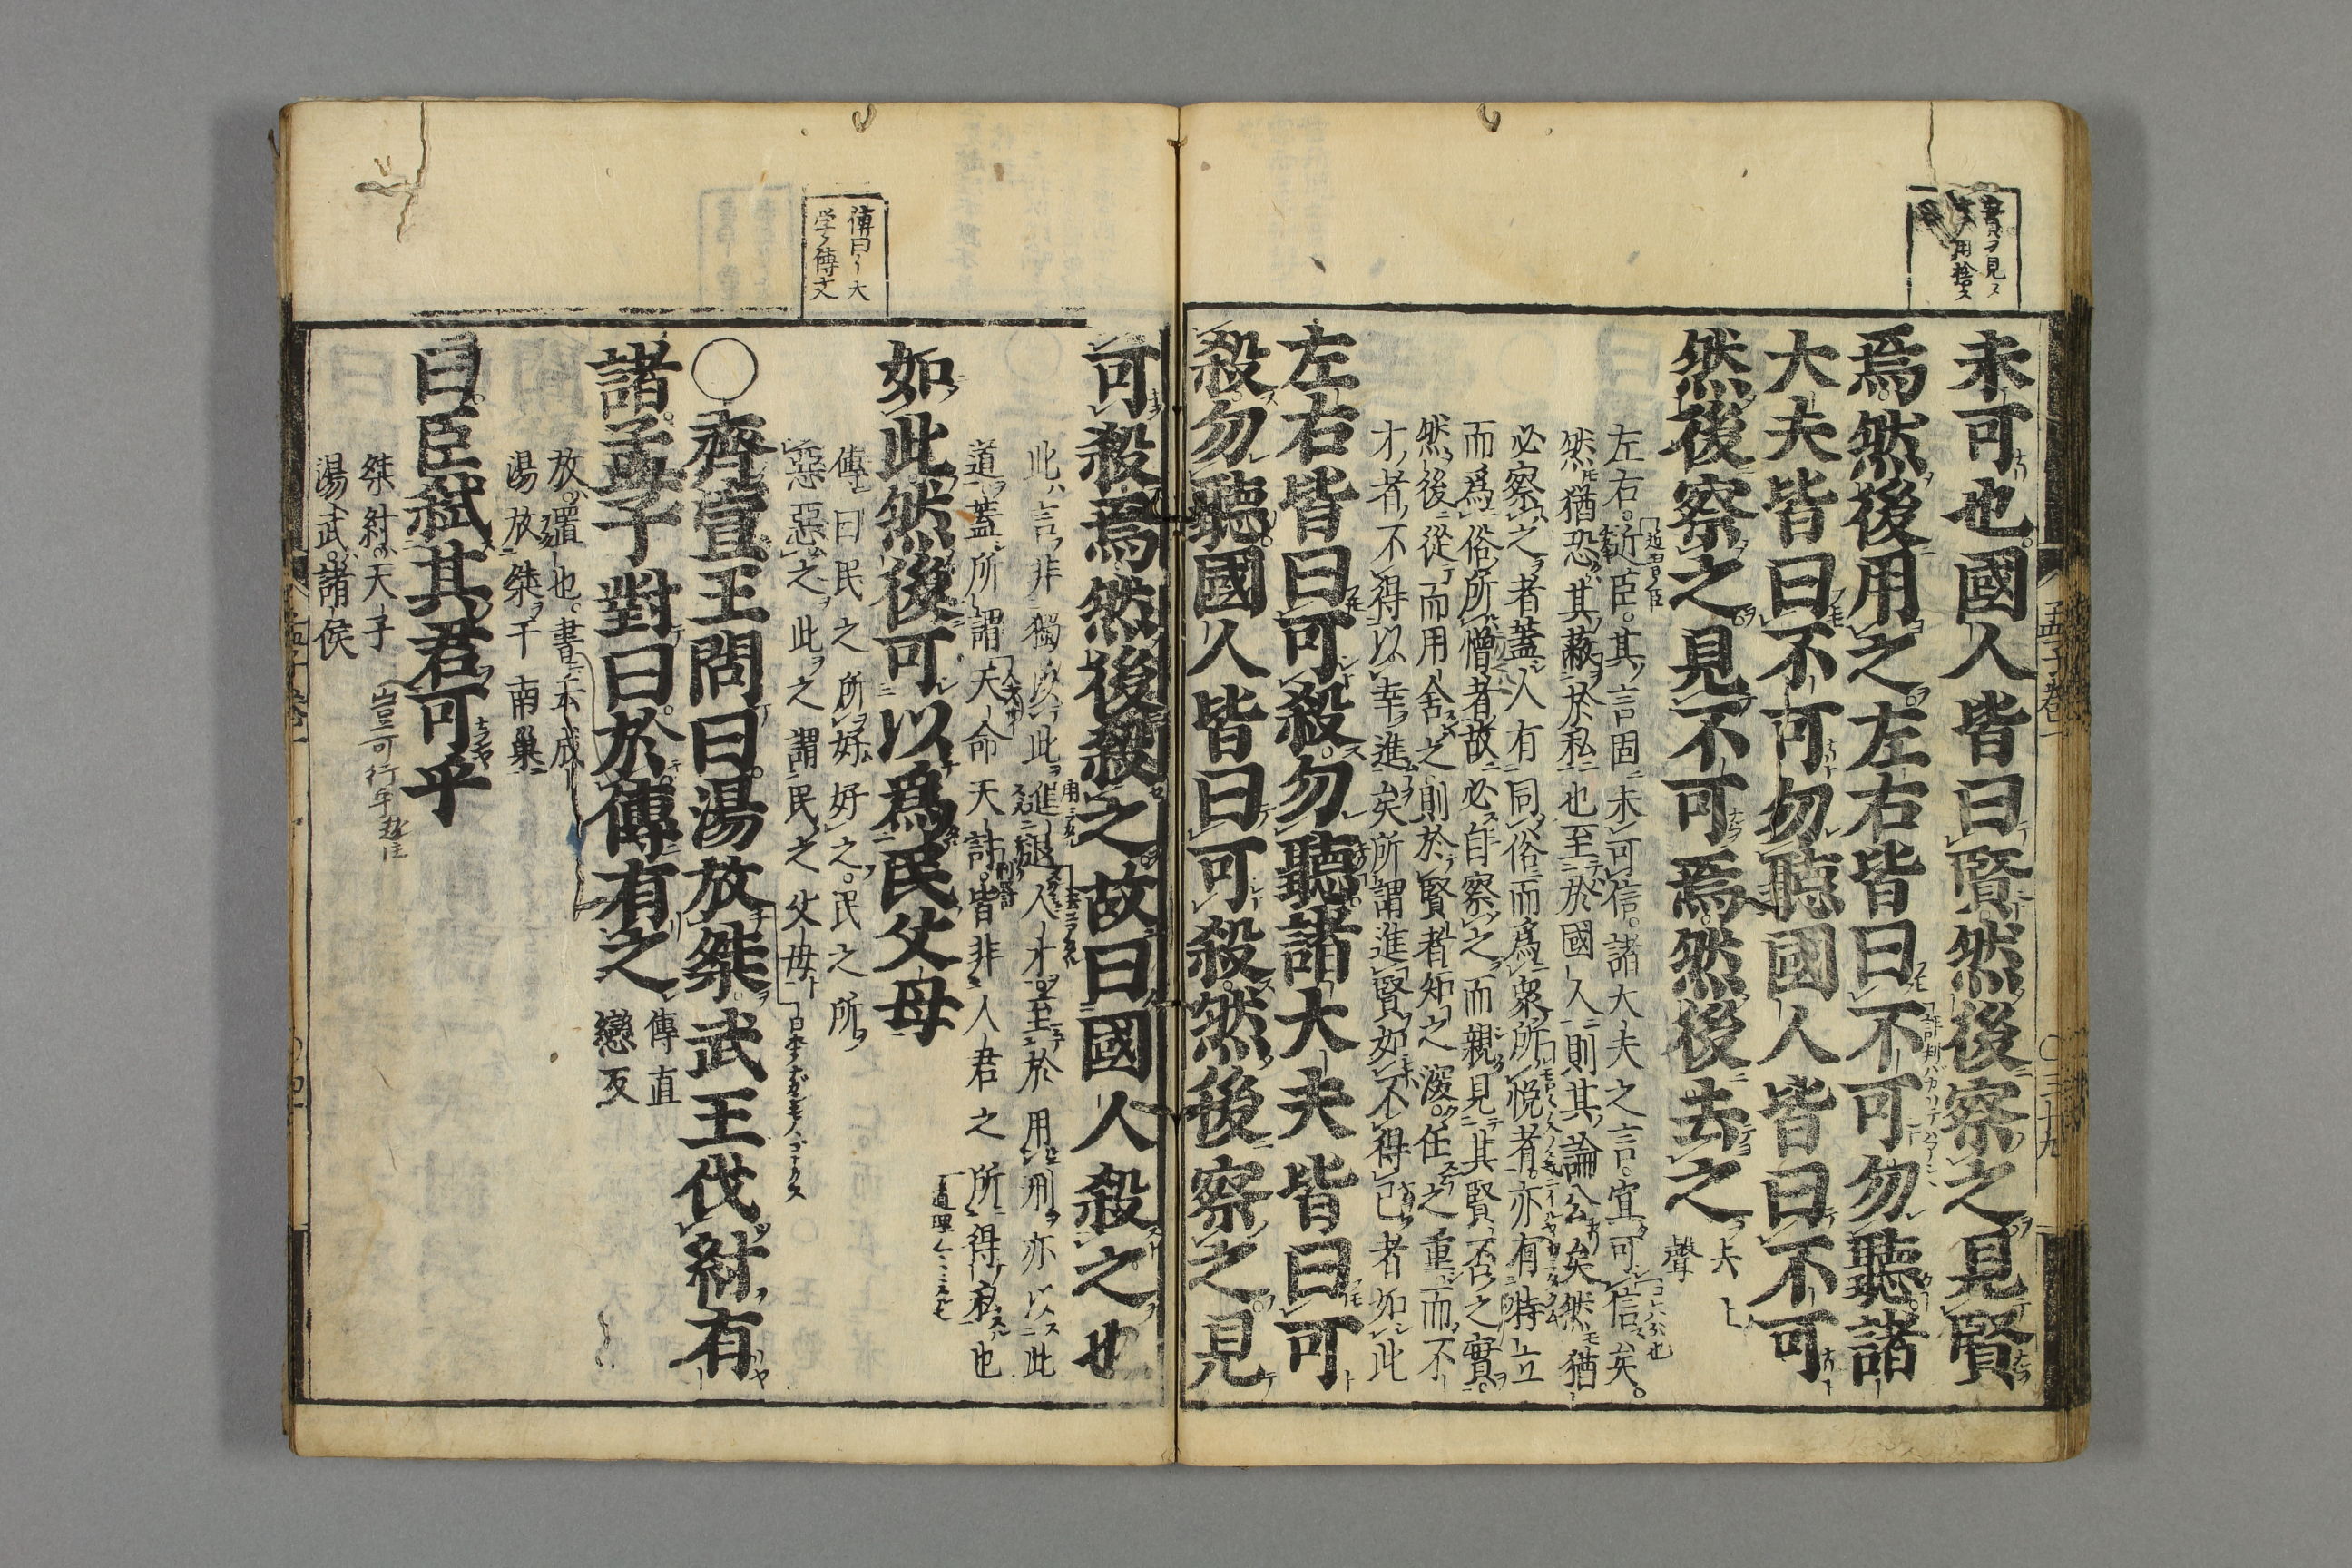 未可也國人皆曰賢然後察之見賢
焉然後用之左右皆曰不可勿聽諸
大夫皆曰不可勿聽國人皆曰不可
然後察之見不可焉然後去之 去上聲
左右近臣其言固未可信諸大夫之言宜可信矣
然猶恐其蔽於私也至於國人則其論公矣然猶
必察之者蓋人有同俗而爲衆所悅者亦有特立
而爲俗所憎者故必自察之而親見其賢否之實
然後從而用舍之則於賢者知之深任之重而不
才者不得以幸進矣所謂進賢如不得已者如此
左右皆曰可殺勿聽諸大夫皆曰可
殺勿聽國人皆曰可殺然後察之見
可殺焉然後殺之故曰國人殺之也
此言非獨以此進退人才至於用刑亦以此
道蓋所謂天命天討皆非人君之所得私也
如此然後可以爲民父母
傳曰民之所好好之民之所
惡惡之此之謂民之父母
○齊宣王問曰湯放桀武王伐紂有
諸孟子對曰於傳有之 傳直戀反
放置也書云成
湯放桀于南巢
曰臣弑其君可乎
桀紂天子
湯武諸侯
傳曰ハ大
学ノ傳文
孟子卷一